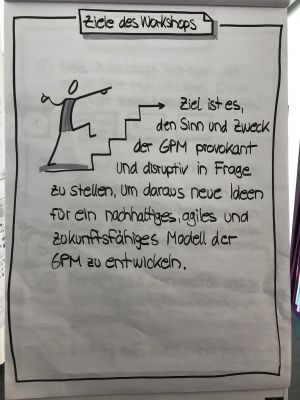 Ziele des Workshops
Ziel ist es,
den Sinn und Zweck
der GPM provokant
und disruptiv in Frage
zu stellen, um daraus neue Ideen
für ein nachhaltiges, agiles und
zukunftsfähiges Modell der
GPM zu entwickeln.